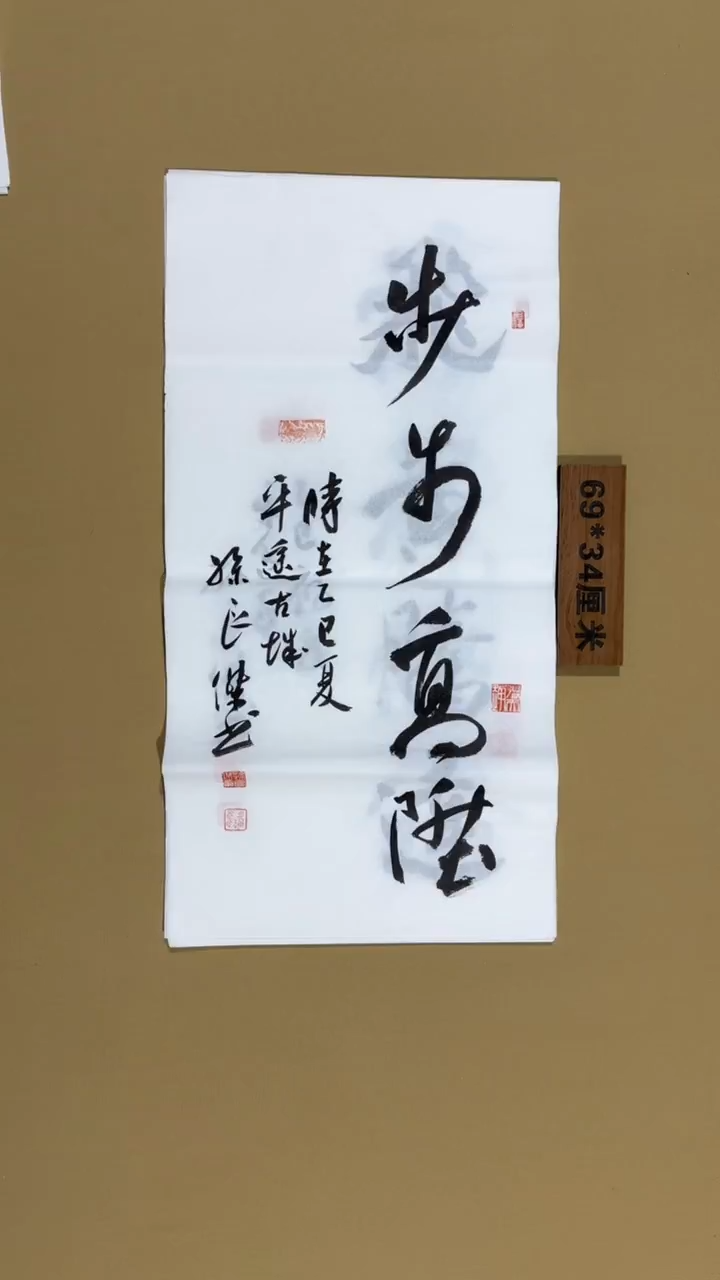 步步高陞
時在乙巳夏
平遥古城
孫良傑书
69*34厘米